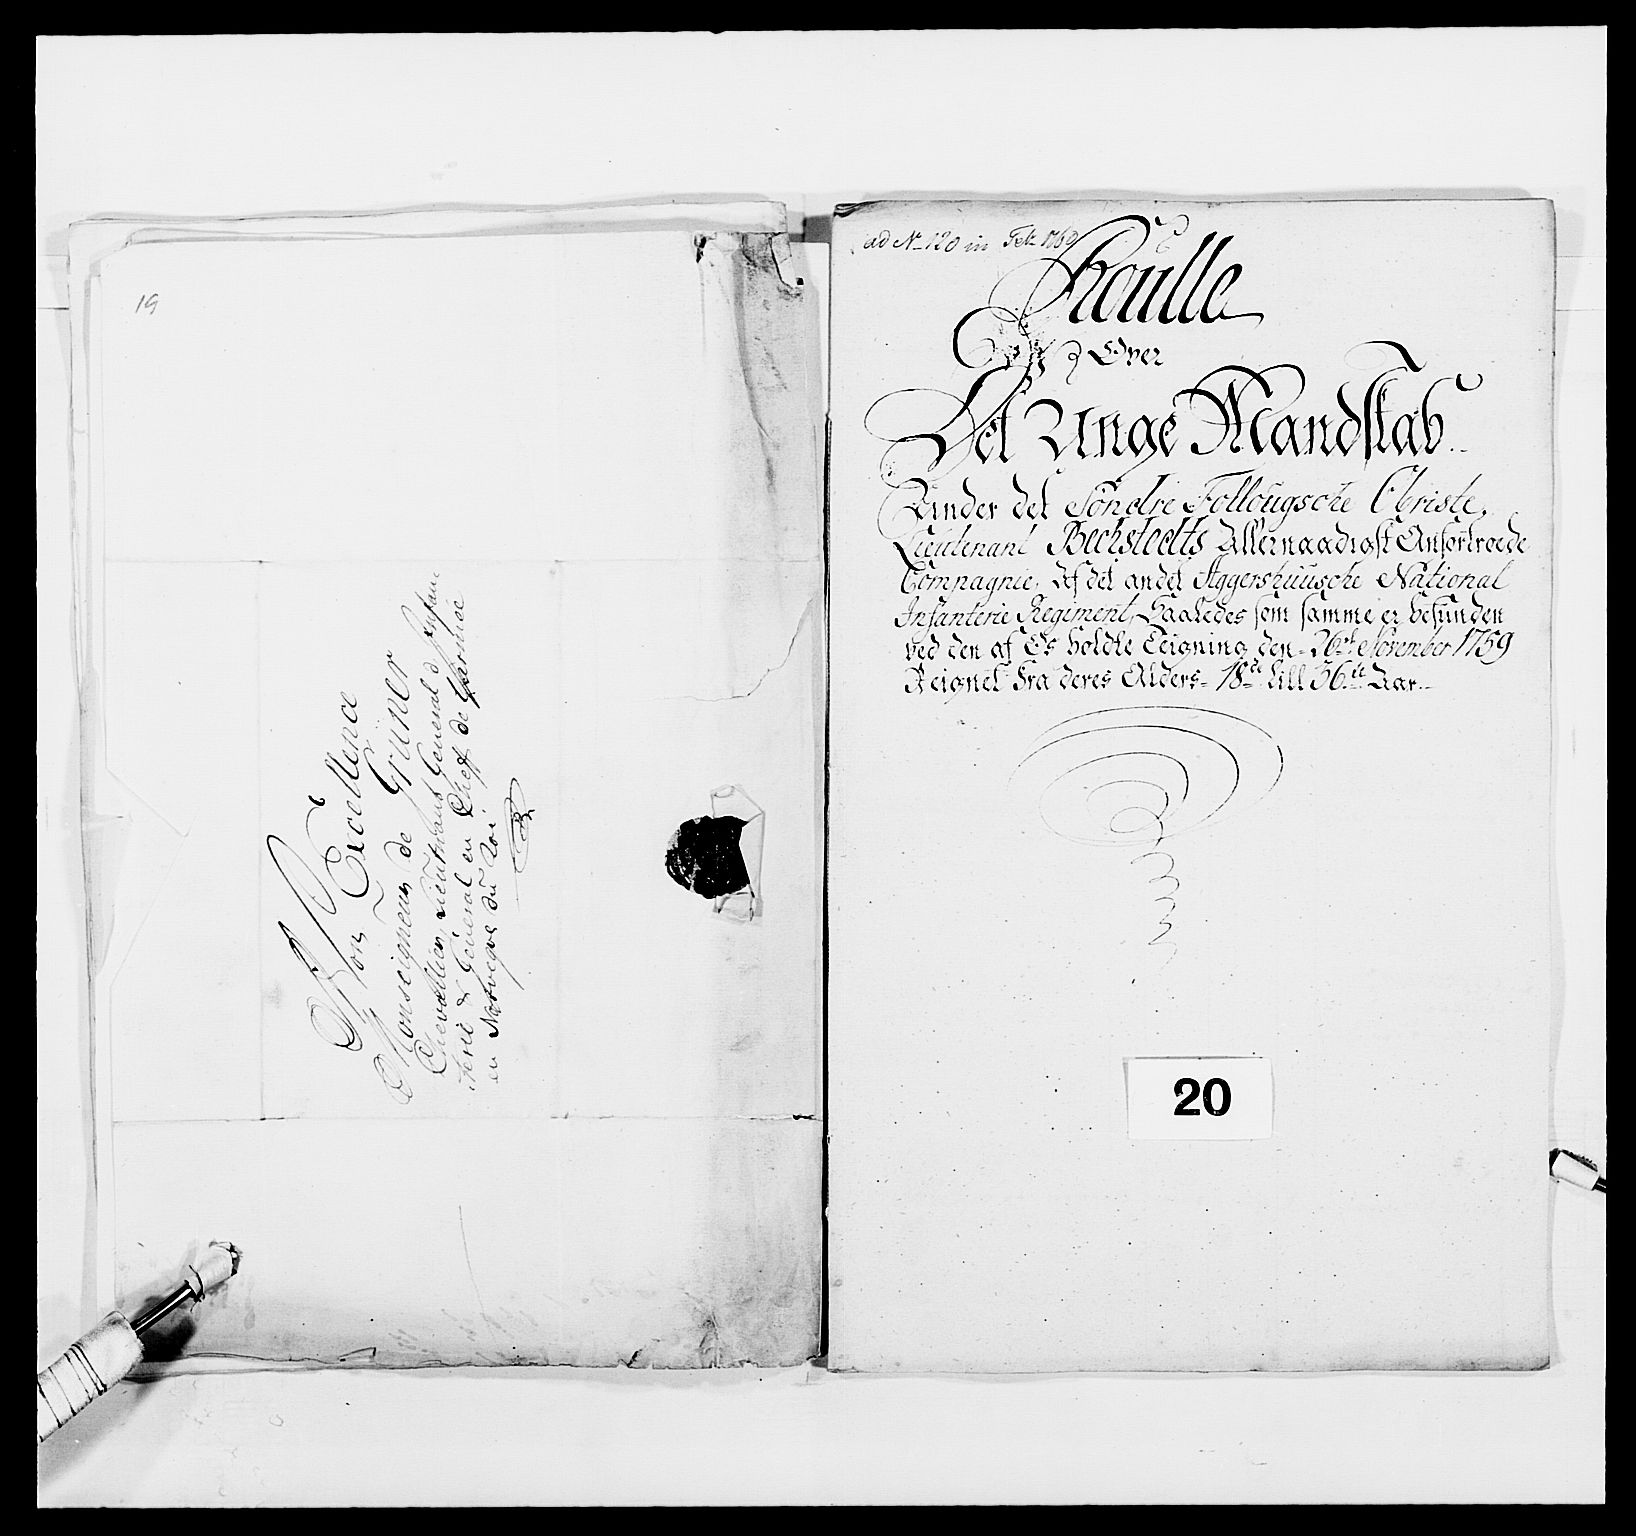 19
A Son Excellence
Monseigneur de Grüner
Chevallier, Lieutnant General d'Infan
terie & General en Cheff de l'armée
en Norvegve du Roi
ad No 120 in Febr 1760
Roulle
Over
Det Unge Mandskab
Under det Söndre Follougsche Obriste
Lieutenant Bechstedts Allernaadigst Anfortroede
Compagnie, Af det andet Aggershuusche National
Infanterie Regiment, Saaledes som samme er befunden
ved den af Os holdte Teigning den 26de November 1759
Reignet fra deres Alders 18de till 36te Aar
20